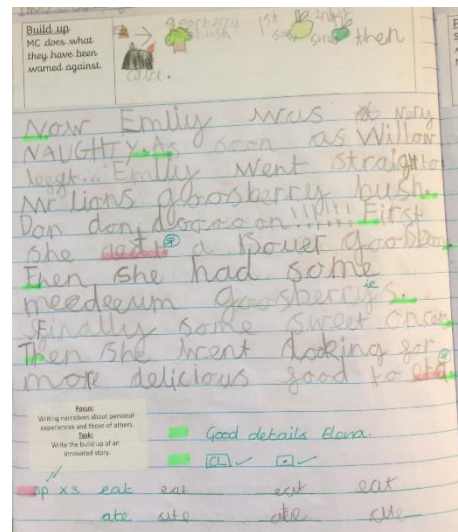 Build up
MC does what
they have been
warned against.
gooseberry
bush
1st
2nd
then
cave.
Now Emliy was a very
NAUGHTY. As soon as Willow
leegt... Emliy went straight to
Mr lions goosberry bush.
Dan dan dooooon!!!!!! First
she a souer
then she had some
meedeeum goosberry's.
Finally some sweet ones
Then she went looking for
more delicious food to
Focus:
Writing narratives about personal
experiences and those of others.
Task:
Write the build up of an
innovated story.
Good details Elena.
CL ✓ . ✓
sp x3 eat eat eat eat
ate ate ate ate